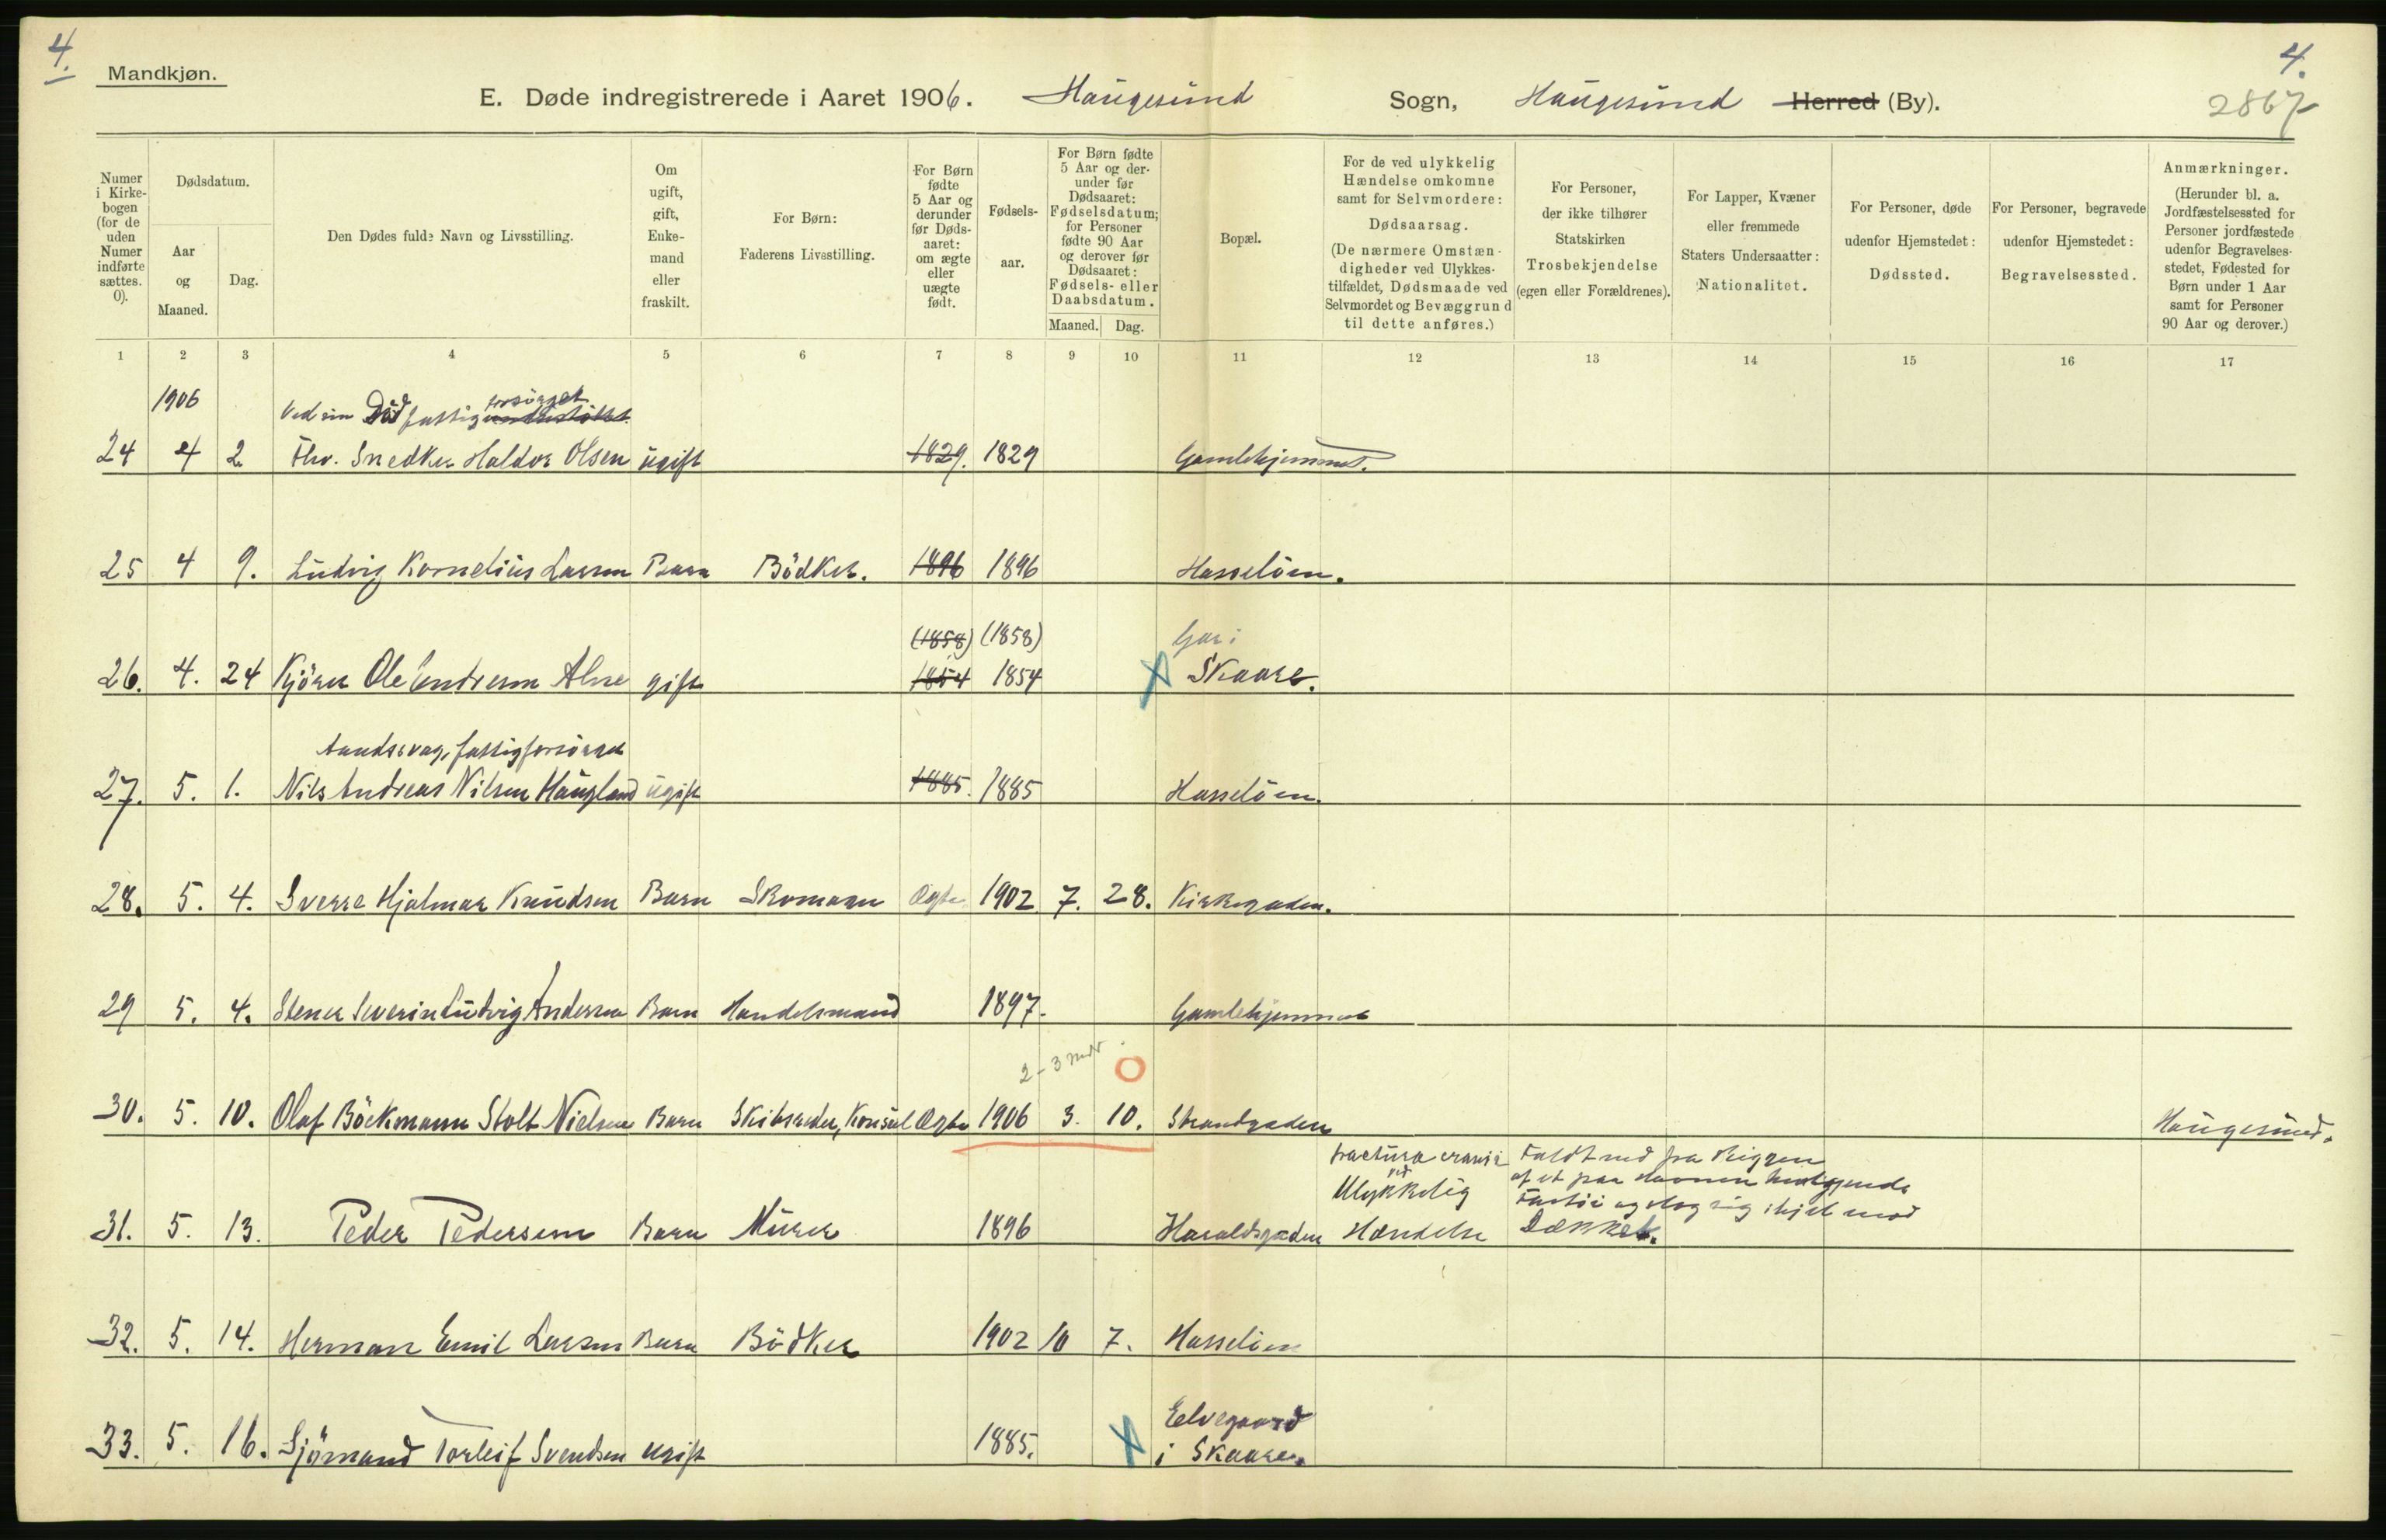 4.
Mandkjøn.
4.
E. Døde indregistrerede i Aaret 1906. Haugesund Sogn, Haugesund Herred (By).
2867
Numer i Kirkebogen (for de uden Numer indførte sættes. 0).
Dødsdatum.
Aar og Maaned.
Dag.
Den Dødes fulde Navn og Livsstilling.
Om ugift, gift, Enkemand eller fraskilt.
For Børn:
Faderens Livsstilling.
For Børn fødte 5 Aar og derunder før Dødsaaret: om ægte eller uægte født.
Fødselsaar.
For Børn fødte 5 Aar og derunder før Dødsaaret: Fødselsdatum; for Personer fødte 90 Aar og derover før Dødsaaret: Fødsels- eller Daabsdatum.
Maaned. Dag.
Bopæl.
For de ved ulykkelig Hændelse omkomne samt for Selvmordere:
Dødsaarsag.
(De nærmere Omstændigheder ved Ulykkestilfældet, Dødsmaade ved Selvmordet og Bevæggrund til dette anføres.)
For Personer, der ikke tilhører Statskirken
Trosbekjendelse
(egen eller Forældrenes).
For Lapper, Kvæner eller fremmede Staters Undersaatter:
Nationalitet.
For Personer, døde udenfor Hjemstedet:
Dødssted.
For Personer, begravede udenfor Hjemstedet:
Begravelsessted.
Anmærkninger.
(Herunder bl. a. Jordfæstelsessted for Personer jordfæstede udenfor Begravelsesstedet, Fødested for Børn under 1 Aar samt for Personer 90 Aar og derover.)
1 2 3 4 5 6 7 8 9 10 11 12 13 14 15 16 17
1906
Ved sin Död fattig understöttet forsörget
24 4 2 Fhv. Snedker Haldor Olsen ugift 1829. 1829 Gamlehjemmet.
25 4 9. Ludvig Kornelius Larsen Barn Bödker. 1896 1896 Hasselöen.
(1858) (1858) Gar i
26. 4. 24 Kjörer Ole Endresen Alne gift 1854 1854 Skaare.
Aandssvag, fattigforsörget
27. 5. 1. Nils Andreas Nilsen Haugland ugift 1885. 1885 Hasselöen.
28. 5. 4. Sverre Hjalmar Knudsen Barn Skomager Ægte 1902 7. 28. Kirkegaden.
29 5. 4. Stener Severin Ludvig Andersen Barn Handelsmand 1897. Gamlehjemmet
2-3 mdr.
30. 5. 10. Olaf Böckmann Stolt Nielsen Barn Skibsreder, Konsul Ægte 1906 3. 10. Strandgaden Haugesund.
Fractura cranii Faldt ned fra Riggen
ved af et paa Havnen henliggende
Ulykkelig Fartöi og slog sig ihjel mod
31. 5. 13. Peder Pedersen Barn Murer 1896 Haraldsgaden Hændelse Dækket.
32. 5. 14. Herman Emil Larsen Barn Bödker 1902 10 7. Hasselöen
Eelvegaard
33. 5. 16. Sjömand Torleif Svendsen ugift 1885. i Skaare.